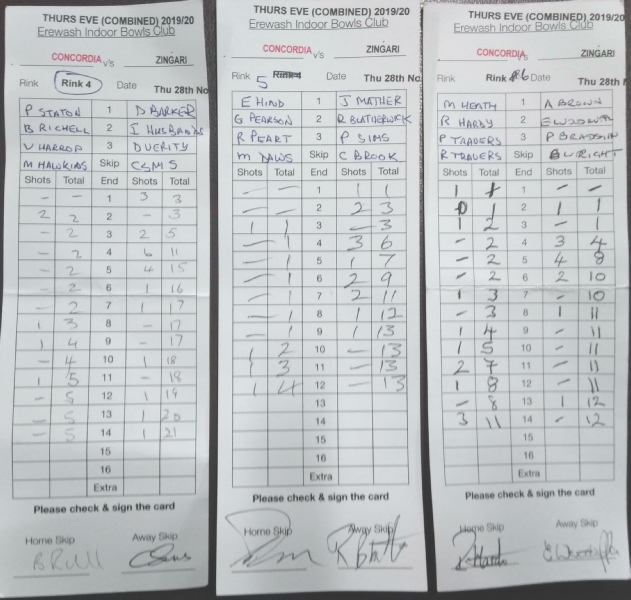 THURS EVE (COMBINED) 2019/20
Erewash Indoor Bowls Club
CONCORDIA v's ZINGARI
Rink Rink 4 Date Thu 28th No
P STATON 1 D BARKER
B RICHELL 2 I HUSBANDS
V HARROP 3 D VERITY
M HAWKINS Skip C SIMS
Shots Total End Shots Total
- - 1 3 3
2 2 2 - 3
- 2 3 2 5
- 2 4 6 11
- 2 5 4 15
- 2 6 1 16
- 2 7 1 17
1 3 8 - 17
1 4 9 - 17
- 4 10 1 18
1 5 11 - 18
- 5 12 1 19
- 5 13 1 20
- 5 14 1 21
15
16
Extra
Please check & sign the card
Home Skip Away Skip
THURS EVE (COMBINED) 2019/20
Erewash Indoor Bowls Club
CONCORDIA v's ZINGARI
Rink 5 Rink 4 Date Thu 28th No
E HIND 1 J MATHER
G PEARSON 2 R BLATHERWICK
R PEART 3 P SIMS
M DAWS Skip C BROOK
Shots Total End Shots Total
- - 1 1 1
- - 2 2 3
1 1 3 - 3
- 1 4 3 6
- 1 5 1 7
- 1 6 2 9
- 1 7 2 11
- 1 8 1 12
- 1 9 1 13
1 2 10 - 13
1 3 11 - 13
1 4 12 - 13
13
14
15
16
Extra
Please check & sign the card
Home Skip Away Skip
THURS EVE (COMBINED) 2019/20
Erewash Indoor Bowls Club
CONCORDIA v's ZINGARI
Rink Rink 6 Date Thu 28th N
M HEATH 1 A BROWN
R HARDY 2 E WOODWA
P TRAVERS 3 P BRADSHAW
R TRAVERS Skip B WRIGHT
Shots Total End Shots Total
1 1 1 - -
0 1 2 1 1
1 2 3 - 1
- 2 4 3 4
- 2 5 4 8
- 2 6 2 10
1 3 7 - 10
- 3 8 1 11
1 4 9 - 11
1 5 10 - 11
2 7 11 - 11
1 8 12 - 11
- 8 13 1 12
3 11 14 - 12
15
16
Extra
Please check & sign the card
Home Skip Away Skip